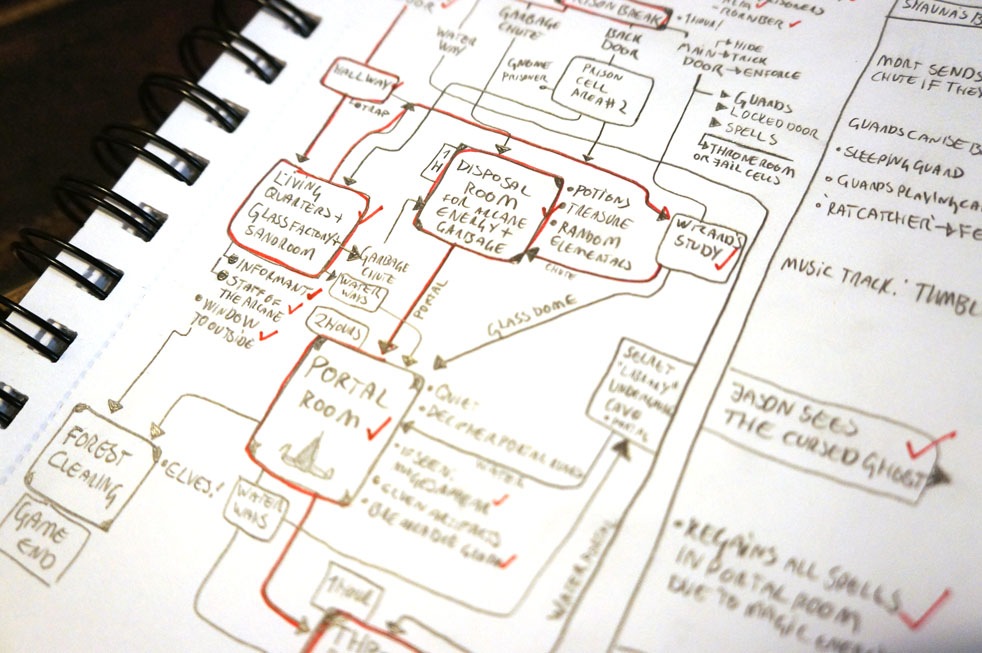 DOOR
GARBAGE
CHUTE
PRISON BREAK
1 HOUR!
WATER
WAY
BACK
DOOR
MAIN
DOOR
HIDE
TRICK
ENFORCE
GUARDS
LOCKED DOOR
SPELLS
THRONE ROOM
OR JAIL CELLS
HALLWAYS
TRAP
GNOME
PRISONER
PRISON
CELL
AREA #2
LIVING
QUARTERS +
GLASS FACTORY +
SANDROOM
1
H
DISPOSAL
ROOM
FOR ARCANE
ENERGY +
GARBAGE
POTIONS
TREASURE
RANDOM
ELEMENTALS
CHUTE
STUDY
INFORMANT
STAFF OF
THE ARCANE
WINDOW
TO OUTSIDE
GARBAGE
CHUTE
WATER
WAYS
PORTAL
GLASS DOME
2 HOURS
PORTAL
ROOM
QUIET
WATER
IF SEEN:
SECRET
"LIBRARY"
CAVE
PORTAL
FOREST
CLEARING
GAME
END
ELVES!
WATER
WAYS
1 HOUR
THR
SHAUNA'S B
MORT SENDS
CHUTE IF THEY
GUARDS CAN ISE B
SLEEPING GUARD
GUARDS PLAYING CA
'RATCATCHER' → FE
MUSIC TRACK: 'TUMBL
JASON SEES
THE CURSED GHOST
REGAINS ALL SPELLS
IN PORTAL ROOM
DUE TO MAGIC